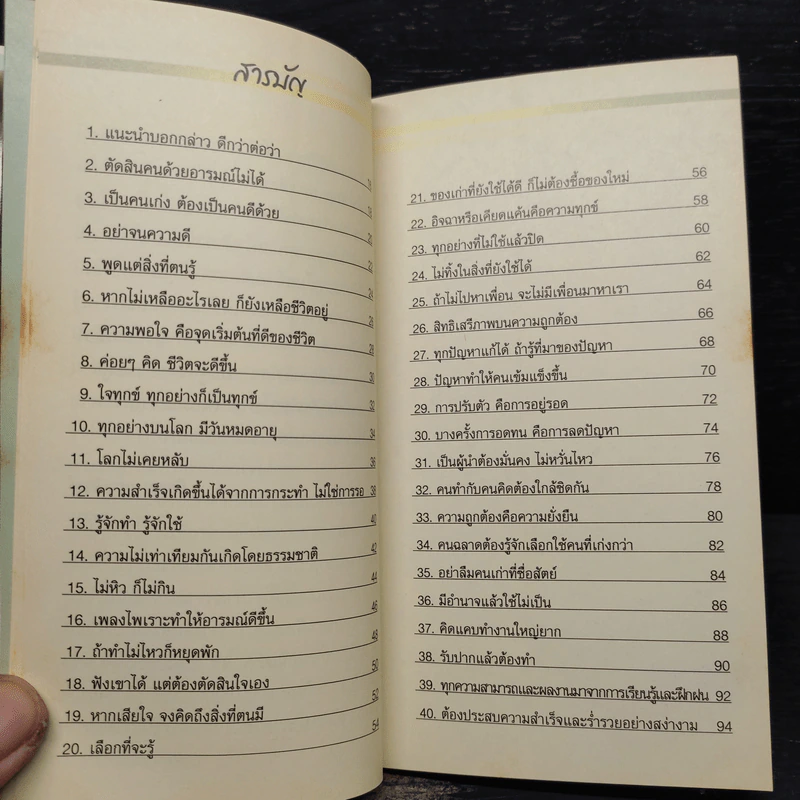 สารบัญ
1. แนะนำบอกกล่าว ดีกว่าต่อว่า 16
2. ตัดสินคนด้วยอารมณ์ไม่ได้ 18
3. เป็นคนเก่ง ต้องเป็นคนดีด้วย 20
4. อย่าจนความดี 22
5. พูดแต่สิ่งที่ตนรู้ 24
6. หากไม่เหลืออะไรเลย ก็ยังเหลือชีวิตอยู่ 26
7. ความพอใจ คือจุดเริ่มต้นที่ดีของชีวิต 28
8. ค่อยๆ คิด ชีวิตจะดีขึ้น 30
9. ใจทุกข์ ทุกอย่างก็เป็นทุกข์ 32
10. ทุกอย่างบนโลก มีวันหมดอายุ 34
11. โลกไม่เคยหลับ 36
12. ความสำเร็จเกิดขึ้นได้จากการกระทำ ไม่ใช่การรอ 38
13. รู้จักทำ รู้จักใช้ 40
14. ความไม่เท่าเทียมกันเกิดโดยธรรมชาติ 42
15. ไม่หิว ก็ไม่กิน 44
16. เพลงไพเราะทำให้อารมณ์ดีขึ้น 46
17. ถ้าทำไม่ไหวก็หยุดพัก 48
18. ฟังเขาได้ แต่ต้องตัดสินใจเอง 50
19. หากเสียใจ จงคิดถึงสิ่งที่ตนมี 52
20. เลือกที่จะรู้ 54
21. ของเก่าที่ยังใช้ได้ดี ก็ไม่ต้องซื้อของใหม่ 56
22. อิจฉาหรือเคียดแค้นคือความทุกข์ 58
23. ทุกอย่างที่ไม่ใช้แล้วปิด 60
24. ไม่ทิ้งในสิ่งที่ยังใช้ได้ 62
25. ถ้าไม่ไปหาเพื่อน จะไม่มีเพื่อนมาหาเรา 64
26. สิทธิเสรีภาพบนความถูกต้อง 66
27. ทุกปัญหาแก้ได้ ถ้ารู้ที่มาของปัญหา 68
28. ปัญหาทำให้คนเข้มแข็งขึ้น 70
29. การปรับตัว คือการอยู่รอด 72
30. บางครั้งการอดทน คือการลดปัญหา 74
31. เป็นผู้นำต้องมั่นคง ไม่หวั่นไหว 76
32. คนทำกับคนคิดต้องใกล้ชิดกัน 78
33. ความถูกต้องคือความยั่งยืน 80
34. คนฉลาดต้องรู้จักเลือกใช้คนที่เก่งกว่า 82
35. อย่าลืมคนเก่าที่ซื่อสัตย์ 84
36. มีอำนาจแล้วใช้ไม่เป็น 86
37. คิดแคบทำงานใหญ่ยาก 88
38. รับปากแล้วต้องทำ 90
39. ทุกความสามารถและผลงานมาจากการเรียนรู้และฝึกฝน 92
40. ต้องประสบความสำเร็จและร่ำรวยอย่างสง่างาม 94